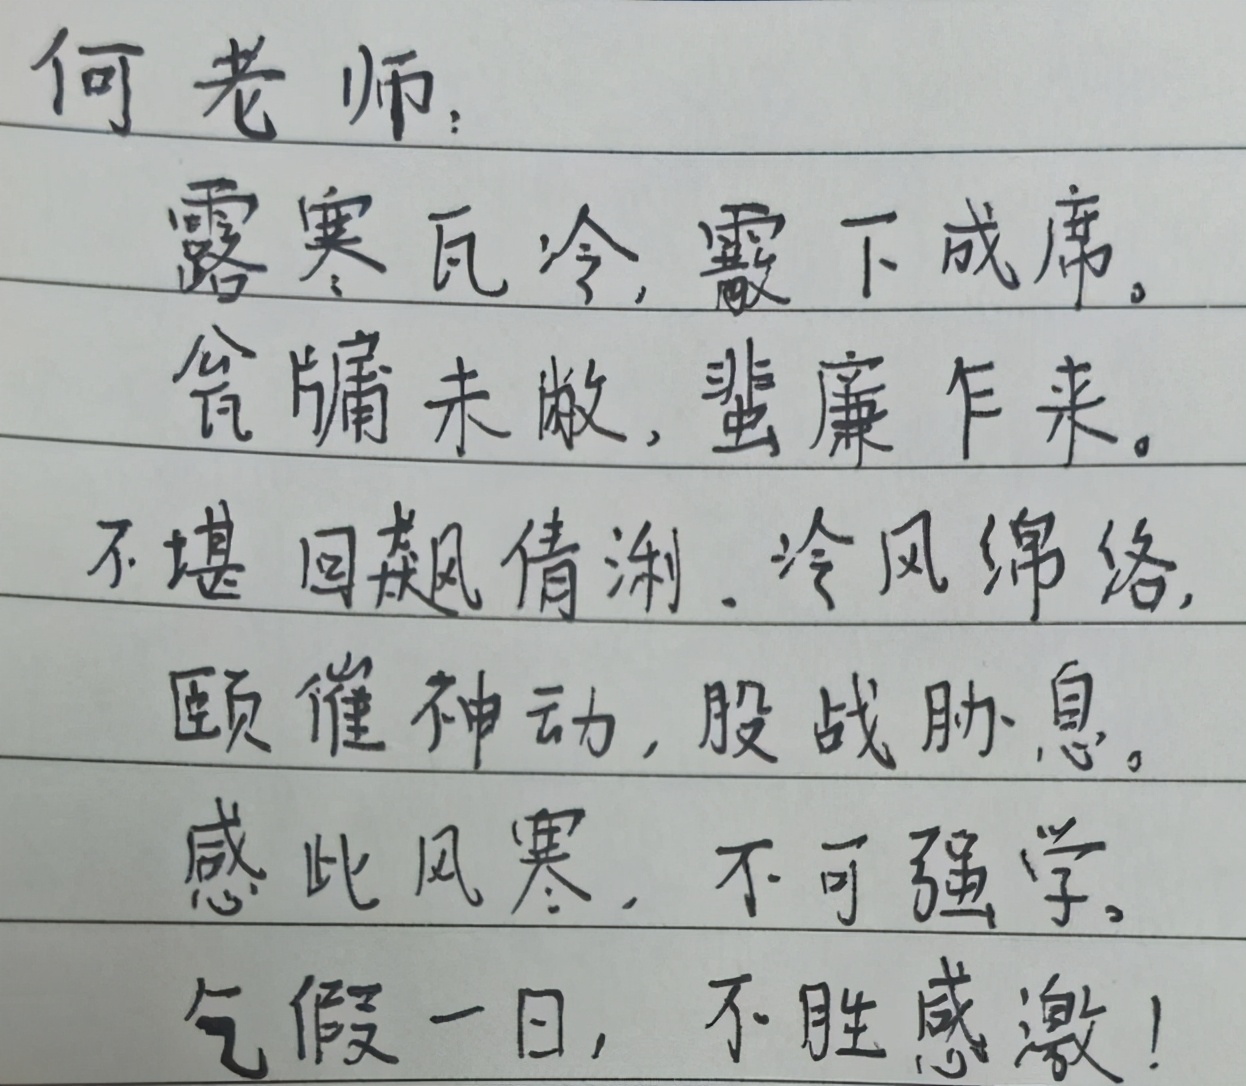 何老师:
露寒瓦冷,霰下成席。
瓮牗未敝,蜚廉乍来。
不堪回飙倩浰.冷风绵络,
颐催神动,股战胁息。
感此风寒,不可强学。
乞假一日,不胜感激!